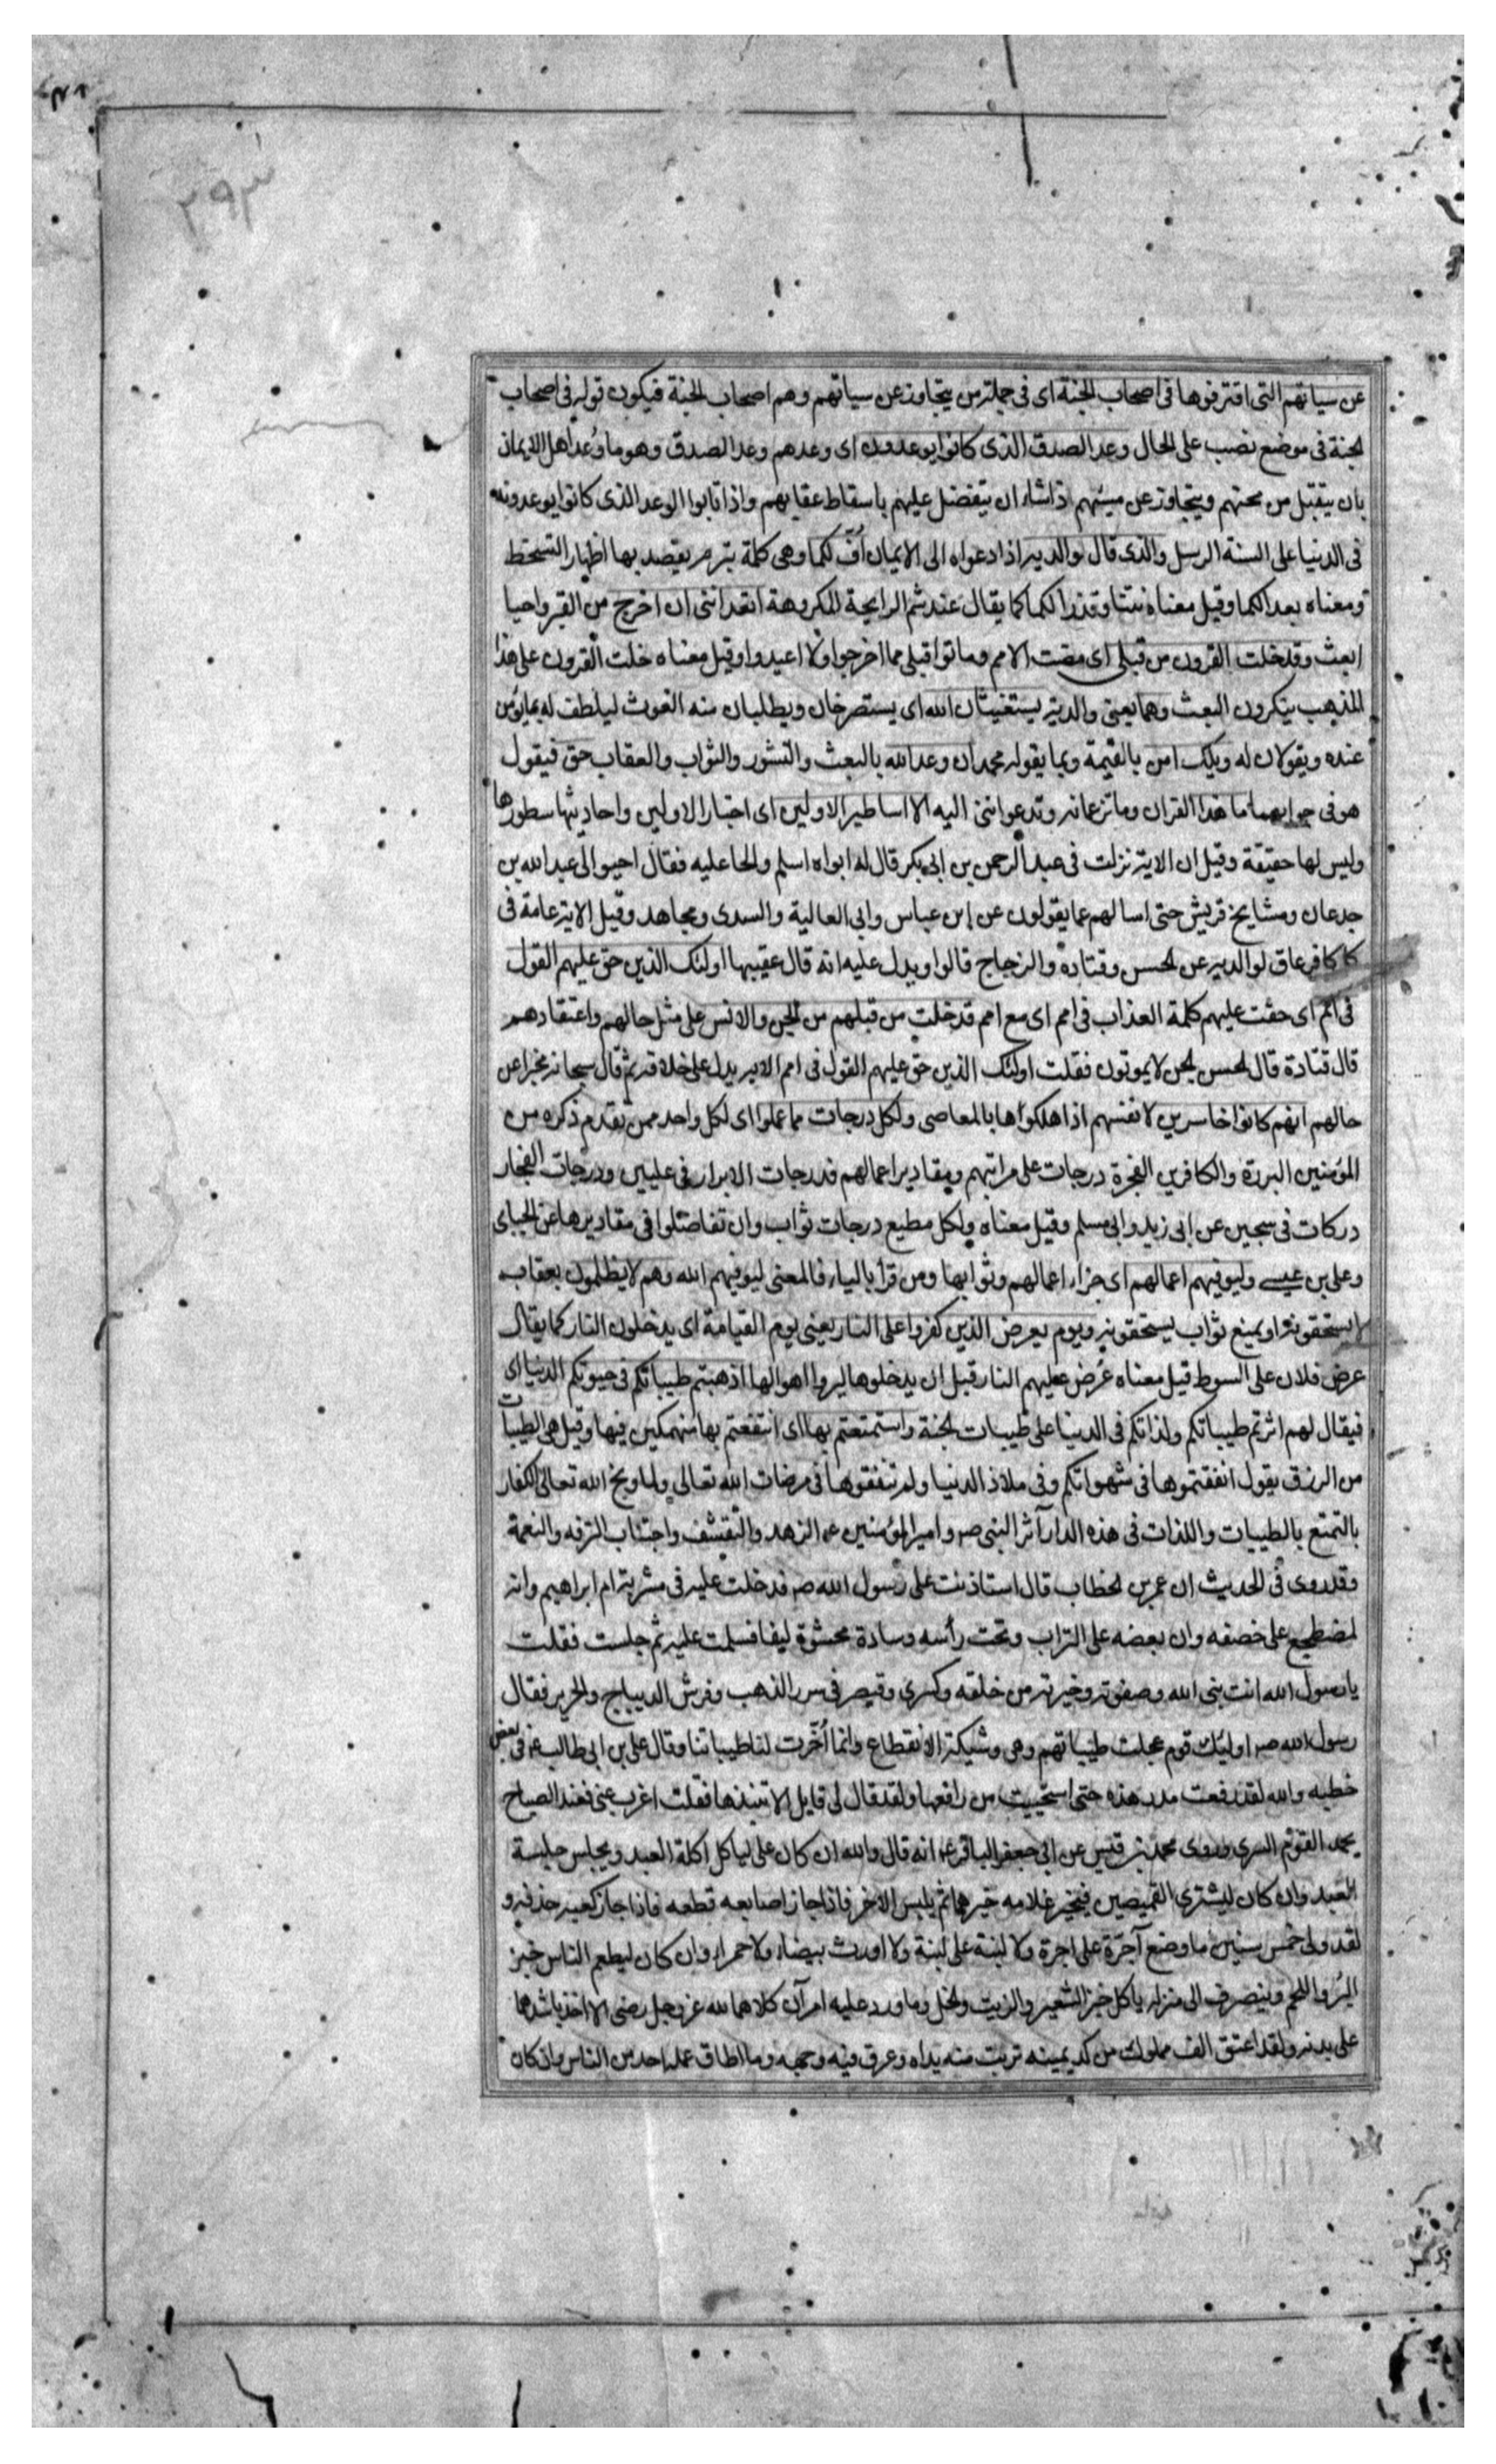 ٢٩٣
عن سياتهم التى اقترفوها فى اصحاب الجنة اى فى جملة من يتجاوز عن سياتهم وهم اصحاب الجنة فيكون قوله فى اصحاب
الجنة فى موضع نصب على الحال وعد الصدق الذى كانوا يوعدون اى وعدهم وعد الصدق وهو ما وُعد اهل الايمان
بان يتقبل من محسنهم ويتجاوز عن مسيئهم اذا شاء ان يتفضل عليهم باسقاط عقابهم واذا تابوا الوعد الذى كانوا يوعدونه
فى الدنيا على السنة الرسل والذى قال لوالديه اذا دعواه الى الايمان اُفّ لكما وهى كلمة تبرم يقصد بها اظهار التسخط
ومعناه بعدا لكما وقيل معناه نتنا وقذرا لكما كما يقال عند شم الرايحة المكروهة اتعداننى ان اخرج من القبر واحيا
ابعث وقد خلت القرون من قبلى اى مضت الامم وماتوا قبلى مما اخرجوا ولا اعيدوا وقيل معناه خلت القرون على هذا
المذهب ينكرون البعث وهما يعنى والديه يستغيثان الله اى يستصرخان ويطلبان منه الغوث ليلطف له بما يؤمن
عنده ويقولان له ويلك امن بالقيمة وبما يقوله محمد ان وعد الله بالبعث والنشور والثواب والعقاب حق فيقول
هو فى جوابهما ما هذا القران وما تزعمانه وتدعواننى اليه الا اساطير الاولين اى اخبار الاولين واحاديثها سطورها
وليس لها حقيقة وقيل ان الاية نزلت فى عبد الرحمن بن ابى بكر قال له ابواه اسلم والحا عليه فقال احيوا لى عبد الله بن
جدعان ومشايخ قريش حتى اسالهم عما يقولون عن ابن عباس وابى العالية والسدى ومجاهد وقيل الاية عامة فى
كل كافر عاق لوالديه عن الحسن وقتادة والزجاج قالوا ويدل عليه انه قال عقيبها اولئك الذين حق عليهم القول
فى امم اى حقت عليهم كلمة العذاب فى امم اى مع امم قد خلت من قبلهم من الجن والانس على مثل حالهم واعتقادهم
قال قتادة قال الحسن الجن لا يموتون فقلت اولئك الذين حق عليهم القول فى امم الاية يدل على خلافه ثم قال سبحانه مخبرا عن
حالهم انهم كانوا خاسرين لانفسهم اذ اهلكوها بالمعاصى ولكل درجات مما عملوا اى لكل واحد ممن تقدم ذكره من
المؤمنين البررة والكافرين الفجرة درجات على مراتبهم ومقادير اعمالهم فدرجات الابرار فى عليين ودرجات الفجار
دركات فى سجين عن ابى زيد وابى مسلم وقيل معناه ولكل مطيع درجات ثواب وان تفاضلوا فى مقاديرها عن الجباى
وعلى بن عيسى وليوفيهم اعمالهم اى جزاء اعمالهم وثوابها ومن قرأ بالياء فالمعنى ليوفيهم الله وهم لا يظلمون بعقاب
لا يستحقونه او بمنع ثواب يستحقونه ويوم يعرض الذين كفروا على النار يعنى يوم القيامة اى يدخلون النار كما يقال
عرض فلان على السوط قيل معناه عُرض عليهم النار قبل ان يدخلوها ليروا اهوالها اذهبتم طيباتكم فى حيوتكم الدنيا اى
فيقال لهم اثرتم طيباتكم ولذاتكم فى الدنيا على طيبات الجنة واستمتعتم بها اى انتفعتم بها منهمكين فيها وقيل هى الطيبات
من الرزق يقول انفقتموها فى شهواتكم وفى ملاذ الدنيا ولم تنفقوها فى مرضات الله تعالى ولما وبخ الله تعالى الكفار
بالتمتع بالطيبات واللذات فى هذه الدار آثر النبى صه وامير المؤمنين عه الزهد والتقشف واجتناب الترفه والنعمة
وقد روى فى الحديث ان عمر بن الخطاب قال استاذنت على رسول الله صه فدخلت عليه فى مشربة ام ابراهيم وانه
لمضطجع على خصفه وان بعضه على التراب وتحت رأسه وسادة محشوة ليفا فسلمت عليه ثم جلست فقلت
يا رسول الله انت نبى الله وصفوته وخيرته من خلقه وكسرى وقيصر فى سرر الذهب وفرش الديباج والحرير فقال
رسول الله صه اوليك قوم عجلت طيباتهم وهى وشيكة الانقطاع وانما اُخّرت لنا طيباتنا وقال على بن ابى طالب عه فى بعض
خطبه والله لقد رفعت مدرعتى هذه حتى استحييت من راقعها ولقد قال لى قايل الا تنبذها فقلت اغرب عنى فعند الصباح
يحمد القوم السرى وروى محمد بن قيس عن ابى جعفر الباقر عه انه قال والله ان كان على لياكل اكلة العبد ويجلس جلسة
العبد وان كان ليشترى القميصين فيخير غلامه خيرهما ثم يلبس الاخر فاذا جاز اصابعه قطعه فاذا جاز كعبه حذفه و
لقد ولى خمس سنين ما وضع آجرّة على اجرة ولا لبنة على لبنة ولا اورث بيضاء ولا حمراء وان كان ليطعم الناس خبز
البُر واللحم وينصرف الى منزله ياكل خبز الشعير والزيت والخل وما ورد عليه امرآن كلاهما لله عز وجل رضى الا اخذ باشدهما
على بدنه ولقد اعتق الف مملوك من كد يمينه تربت منه يداه وعرق فيه وجهه وما اطاق عمله احد من الناس وان كان